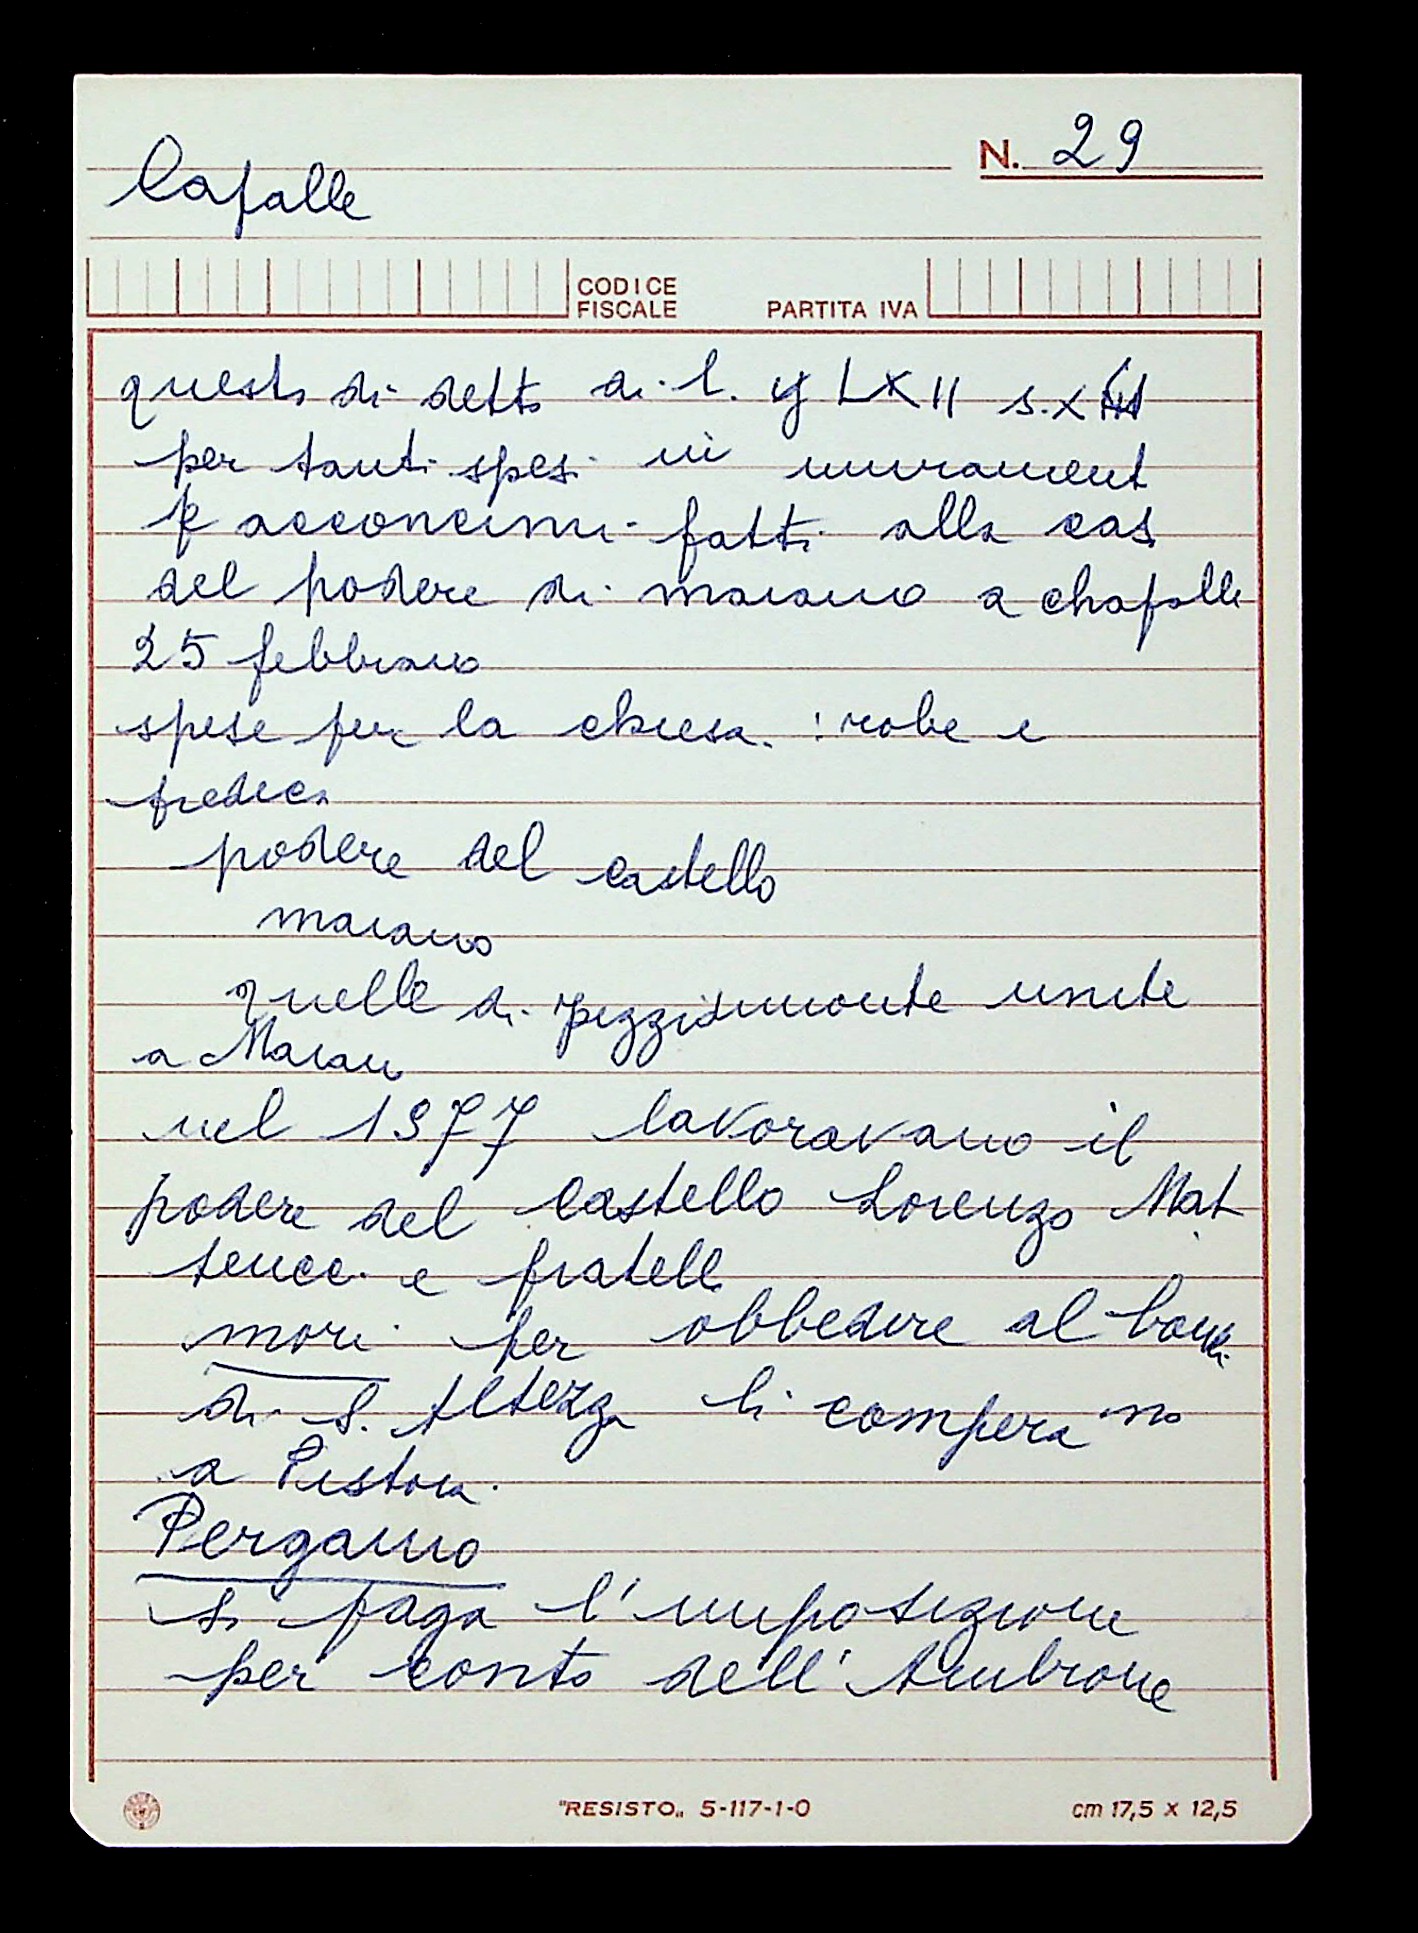 N. 29
Cafalle
CODICE FISCALE PARTITA IVA
questo di detto di l. LXII s. X
per tanti spesi in murament
p acconcimi fatti alla cas
del podere di maiano a chafalle
25 febbraio
spese per la chiesa : robe e
predica
podere del castello
maiano
quelle di pizzidimonte unite
a Maiano
nel 1577 lavoravano il
podere del Castello Lorenzo Mat
teucci e fratelli
mori per obbedire al bando
di S. Altezza li comperano
a Pistoia.
Pergamo
si paga l'imposizione
per conto dell'Ambrone
"RESISTO„ 5-117-1-0 cm 17,5 x 12,5